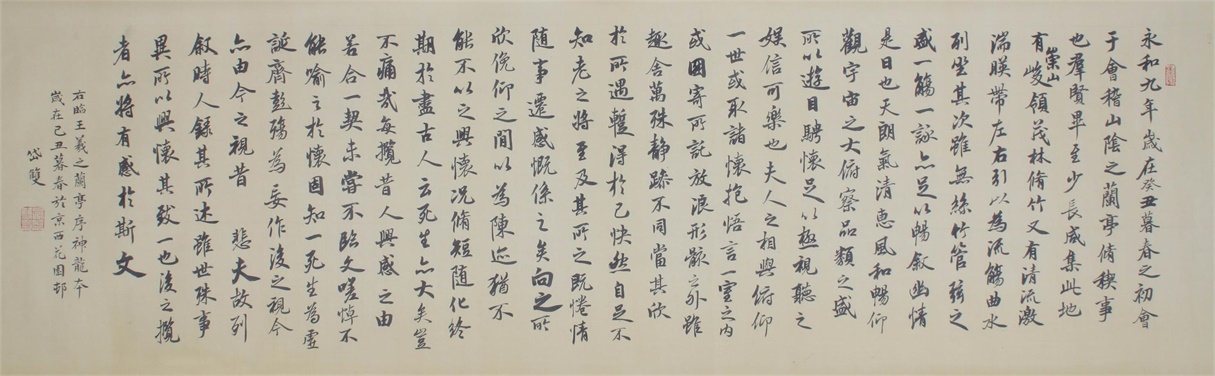 永和九年歲在癸丑暮春之初會
于會稽山陰之蘭亭脩稧事
也羣賢畢至少長咸集此地
有崇山峻領茂林脩竹又有清流激
湍暎帶左右引以為流觴曲水
列坐其次雖無絲竹管弦之
盛一觴一詠亦足以暢敘幽情
是日也天朗氣清惠風和暢仰
觀宇宙之大俯察品類之盛
所以遊目騁懷足以極視聽之
娛信可樂也夫人之相與俯仰
一世或取諸懷抱悟言一室之內
或因寄所託放浪形骸之外雖
趣舍萬殊靜躁不同當其欣
於所遇蹔得於己快然自足不
知老之將至及其所之既惓情
隨事遷感慨係之矣向之所
欣俛仰之間以為陳迹猶不
能不以之興懷況脩短隨化終
期於盡古人云死生亦大矣豈
不痛哉每攬昔人興感之由
若合一契未嘗不臨文嗟悼不
能喻之於懷固知一死生為虛
誕齊彭殤為妄作後之視今
亦由今之視昔 悲夫故列
敘時人錄其所述雖世殊事
異所以興懷其致一也後之攬
者亦將有感於斯文
右臨王羲之蘭亭序神龍本
歲在己丑暮春於京西花園邨
岱雙